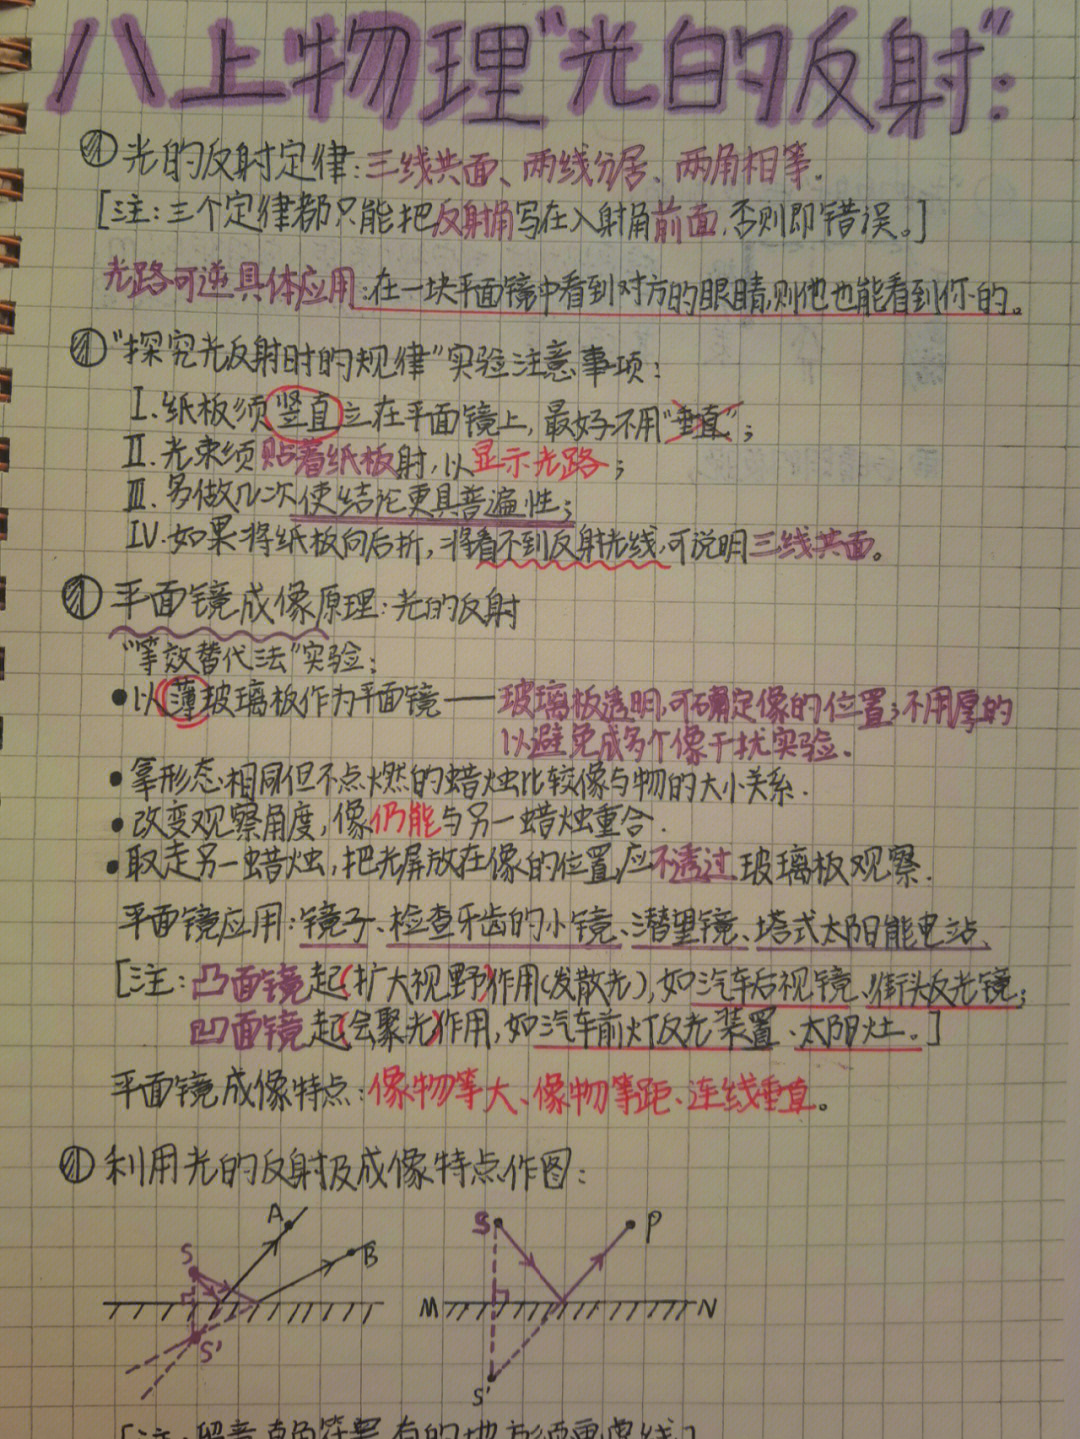 八上物理"光的反射":
①光的反射定律:三线共面、两线分居、两角相等.
[注:三个定律都只能把反射角写在入射角前面,否则即错误。]
光路可逆具体应用:在一块平面镜中看到对方的眼睛,则他也能看到你的。
①"探究光反射时的规律"实验注意事项:
I.纸板须竖直立在平面镜上,最好不用"垂直";
II.光束须贴着纸板射,以显示光路;
III.多做几次使结论更具普遍性;
IV.如果将纸板向后折,将看不到反射光线,可说明三线共面。
①平面镜成像原理:光的反射
"等效替代法"实验:
•以薄玻璃板作为平面镜——玻璃板透明,可确定像的位置;不用厚的
以避免成多个像干扰实验.
•拿形态相同但不点燃的蜡烛比较像与物的大小关系.
•改变观察角度,像仍能与另一蜡烛重合.
•取走另一蜡烛,把光屏放在像的位置,应不透过玻璃板观察.
平面镜应用:镜子、检查牙齿的小镜、潜望镜、塔式太阳能电站、
[注:凸面镜起(扩大视野)作用(发散光),如汽车后视镜、街头反光镜;
凹面镜起(会聚光)作用,如汽车前灯反光装置、太阳灶。]
平面镜成像特点:像物等大、像物等距、连线垂直。
①利用光的反射及成像特点作图:
A S P
S B
M N
S'
S'
[注:留意直角符号,有的地方须画虚线]